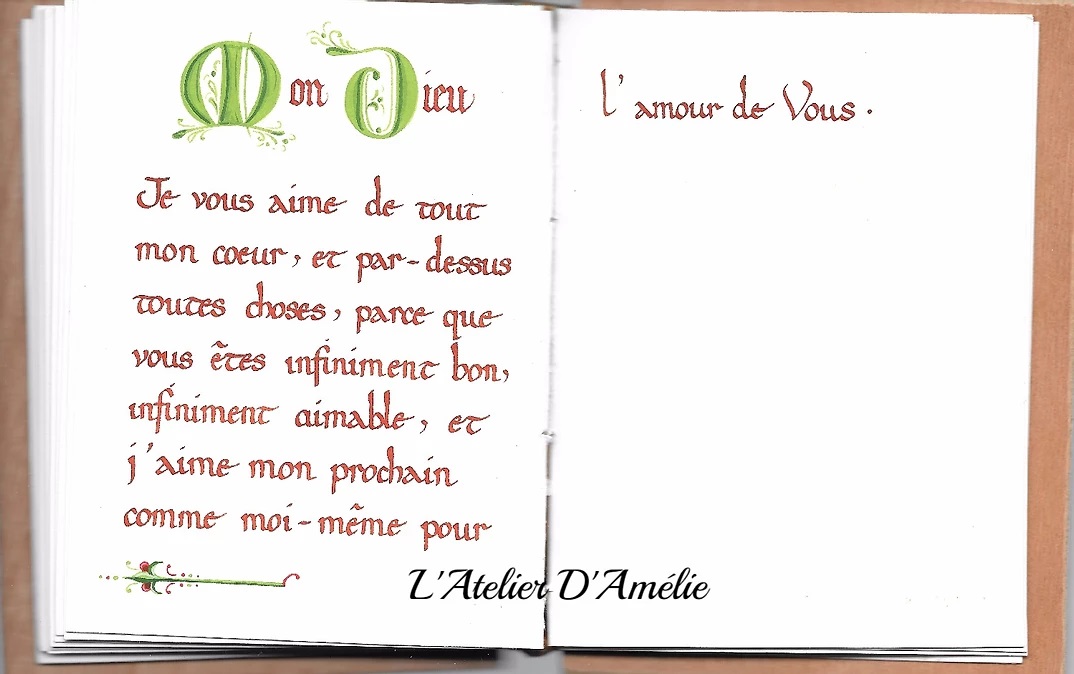 Mon Dieu
Je vous aime de tout
mon coeur, et par-dessus
toutes choses, parce que
vous êtes infiniment bon,
infiniment aimable, et
j'aime mon prochain
comme moi-même pour
l'amour de Vous.
L'Atelier D'Amélie